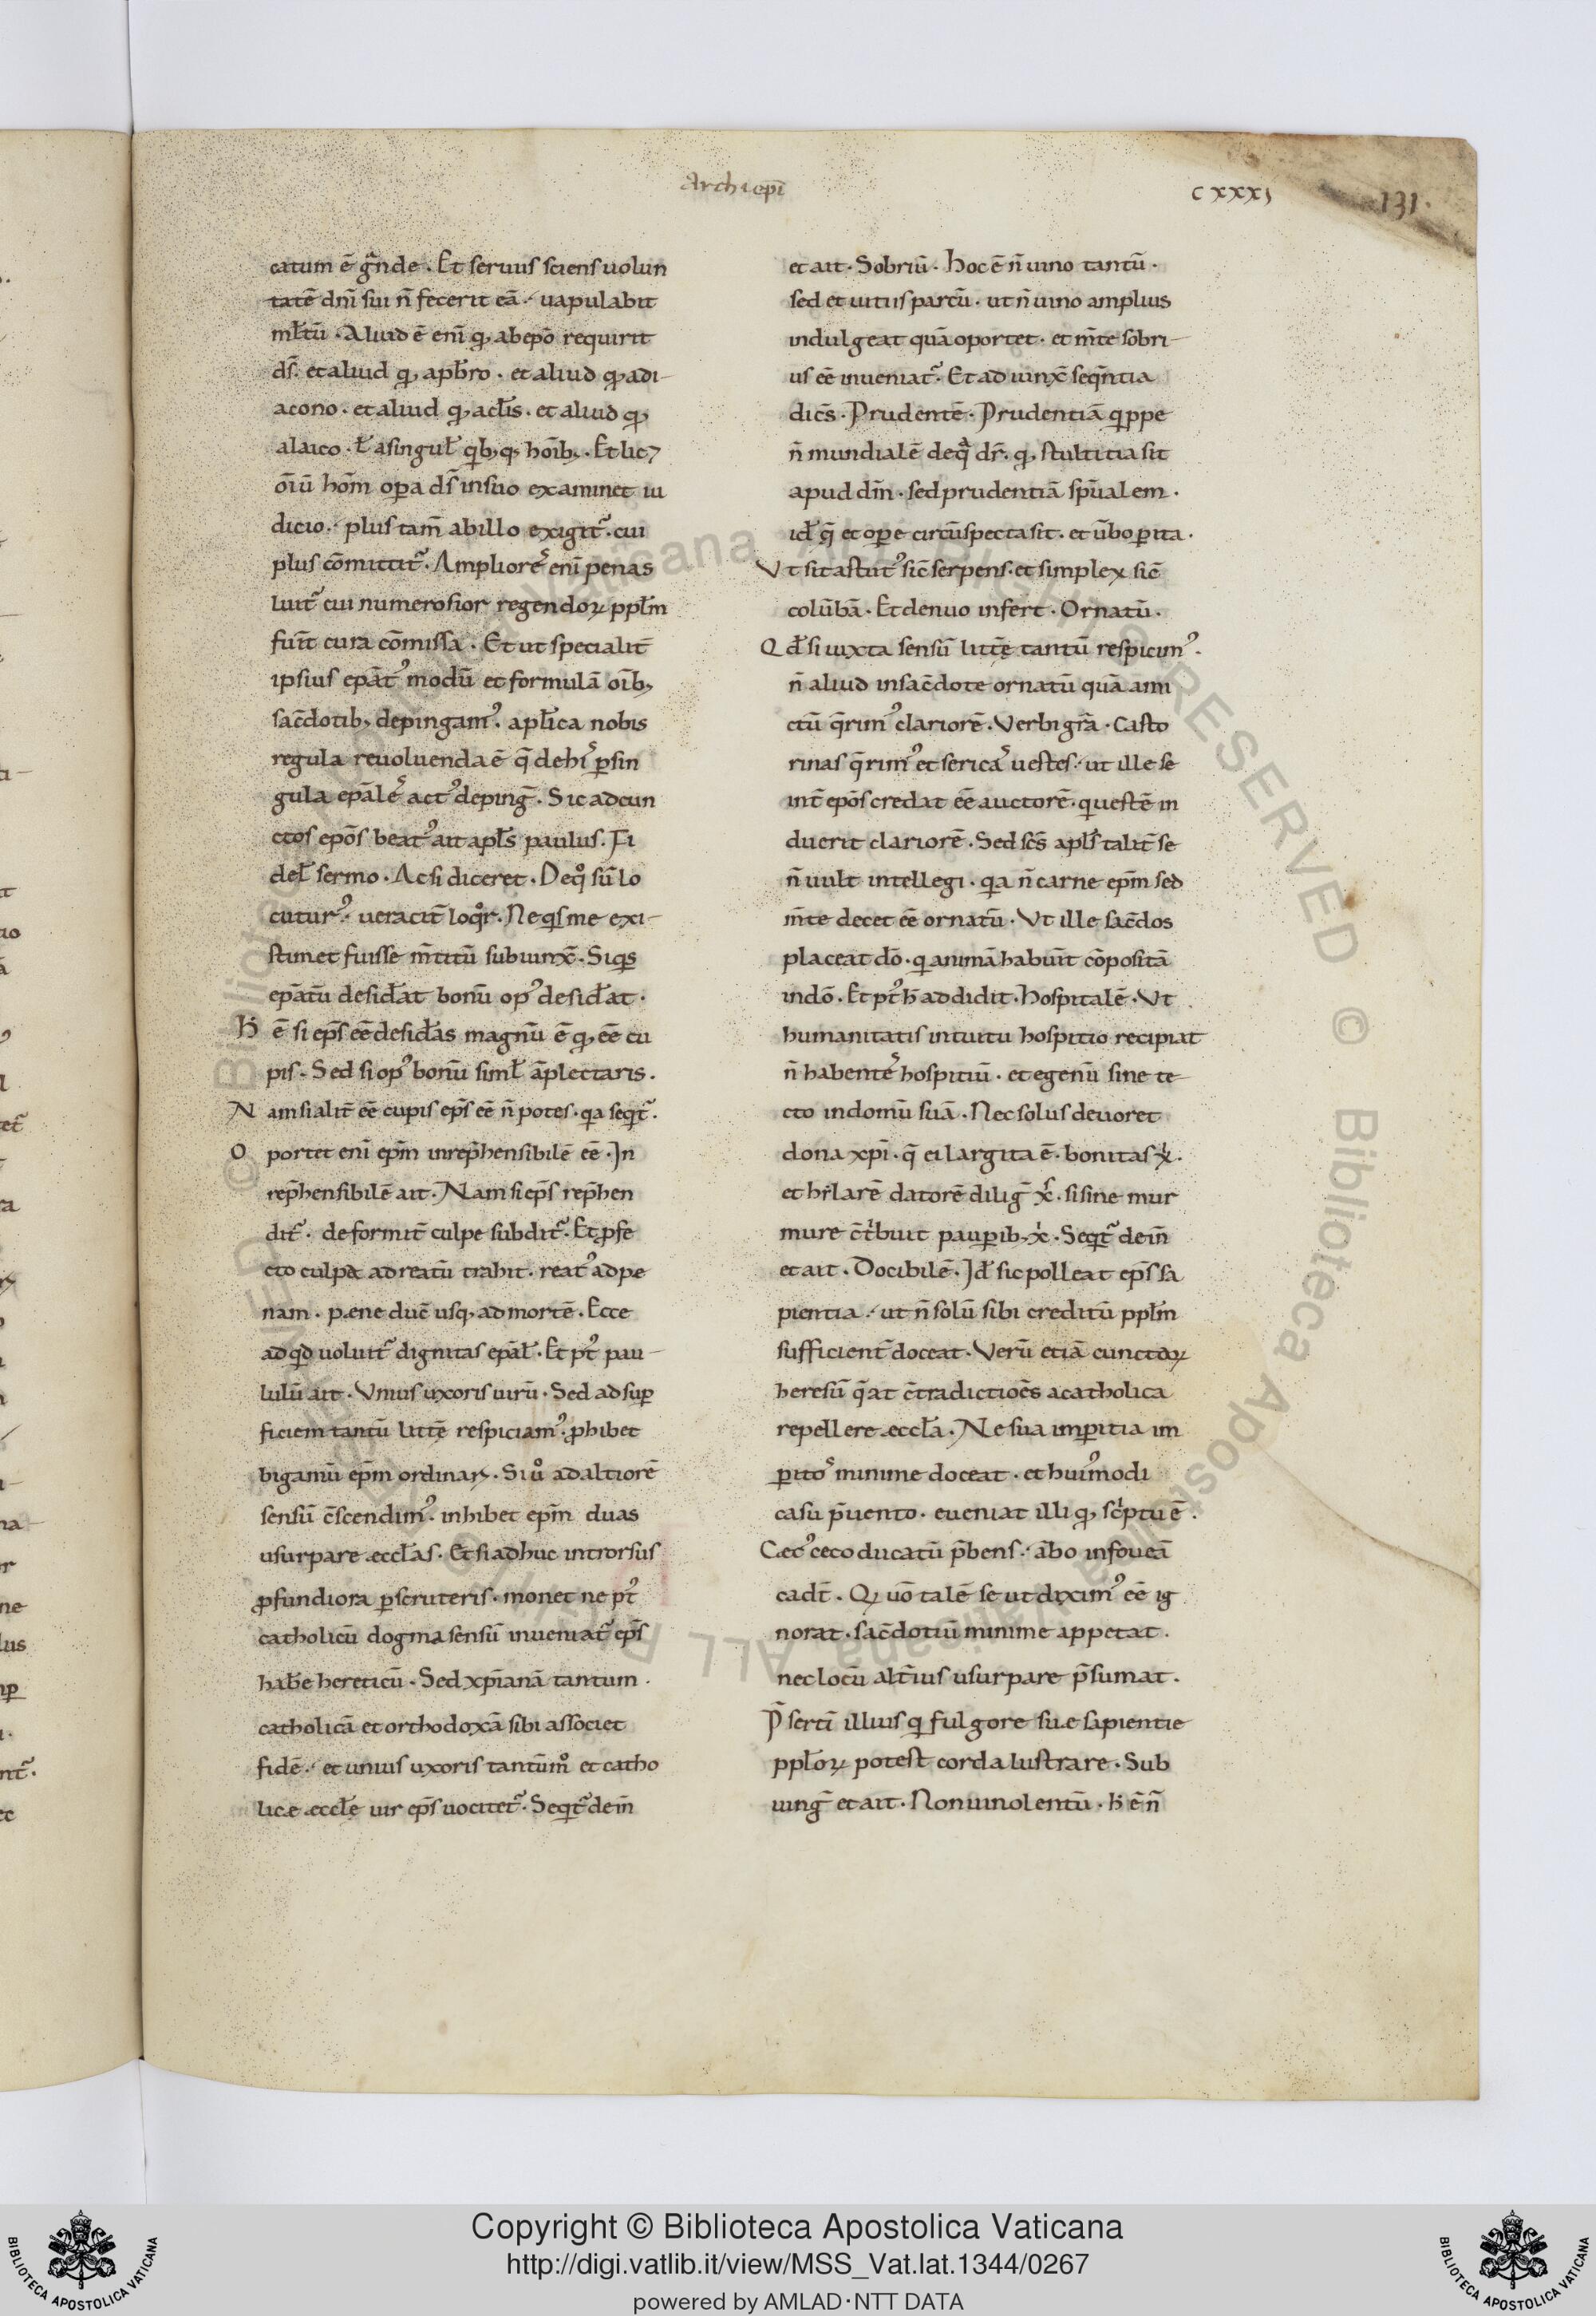 Archiepi
cxxxi 131.
catum ē gn̄de. Et seruus sciens uolun
tatē dn̄i sui n̄ fecerit eā. uapulabit
ml̄tū. Aliud ē eni̅ q, ab epō requirit
ds̄. et aliud q, a pb̄ro. et aliud q, a di-
acono. et aliud q, a cl̄is. et aliud q,
a laico. ł a singuł qb, q, hoi̅b,. Et lic7
oi̅ū hoi̅m opa ds̄ in suo examinet iu
dicio. plus tam̄ ab illo exigit̃. cui
plus cōmittit̃. Ampliorēs eni̅ penas
luit̃ cui numerosior regendoꝝ ppl̄m
fuit̄ cura cōmissa. Et ut specialit̄
ipsius epatꝰ modū et formulā oi̅b,
sac̄dotib, depingamꝰ. apl̄ica nobis
regula reuoluenda ē q̄ de his ꝑ sin
gula epālēs actꝰ deping̃. Sic ad cun
ctos epōs beatꝰ ait apl̄s paulus. Fi
deł sermo. Ac si diceret. De qͦ su̅ lo
cuturꝰ. ueracit̄ loqͦr. Ne qs me exi-
stimet fuisse m̄titū subiunx̄. Si qs
epatū desid̄at bonū opꝰ desid̄at.
H̄ ē si ep̄s ee̅ desid̄as magnū ē q, ee̅ cu
pis. Sed si opꝰ bonū simł āplectaris.
Nam si alit̄ ee̅ cupis ep̄s ee̅ n̄ potes. qa seqt̃.
Oportet eni̅ ep̄m inrep̄hensibilē ee̅. In
rep̄hensibilē ait. Nam si ep̄s rep̄hen
dit̃. deformit̄ culpe subdit̃. Et ꝓfe
cto culpa ad reatū trahit. reatꝰ ad pe
nam. pęne duc̄ usq, ad mortē. Ecce
ad qd uoluit̃ dignitas epāł. Et pt̄ pau-
lulū ait. Vnius uxoris uirū. Sed ad suꝑ
ficiem tantū litt̄ę respiciamꝰ. ꝓhibet
bigamū ep̄m ordinaꝝ. Si uͦ ad altiorē
sensū c̄scendimꝰ. inhibet ep̄m duas
usurpare ęccl̄as. Et si adhuc introrsus
ꝓfundiora ꝑscruteris. monet ne pt̄
catholicū dogma sensū inueniat̃ ep̄s
hab̄e hereticū. Sed xp̄ianā tantum
catholicā et orthodoxā sibi associet
fidē. et unius uxoris tantūmͦ et catho
licæ æccl̄ę uir ep̄s uocitet̃. Seqt̃ dein̄
et ait. Sobriū. Hoc ē n̄ uino tantū.
sed et uitiis parcū. ut n̄ uino amplius
indulgeat quā oportet. et m̄te sobri-
us ee̅ inueniat̃. Et ad iunx̄ seqn̄tia
dicēs. Prudentē. Prudentiā qppe
n̄ mundialē de qa dr̄. q, stultitia sit
apud dm̄. sed prudentiā spūalem.
id̄ q̄ et ope circūspecta sit. et ūbo ꝑita.
Vt sit astutꝰ sic̄ serpens. et simplex sic̄
colūbā. Et denuo infert. Ornatū.
Qd̄ si iuxta sensū litt̄ę tantū respicimꝰ.
n̄ aliud in sac̄dote ornatū quā ami
ctū q̄rimꝰ clariorē. Verbi gr̄a. Casto
rinas q̄rimꝰ et sericas uestes. ut ille se
int̄ epōs credat ee̅ auctorē. q uestē in
duerit clariorē. Sed sc̄s apl̄s talit̄ se
n̄ uult intellegi. qa n̄ carne ep̄m sed
m̄te decet ee̅ ornatū. Vt ille sac̄dos
placeat dō. q animā habuit̄ cōpositā
in dō. Et pt̄ h̄ addidit. Hospitalē. Vt
humanitatis intuitu hospitio recipiat
n̄ habentēs hospitiū. et egenū sine te-
cto in domū suā. Nec solus deuoret
dona xp̄i. q̄ ei largita ē. bonitas xi.
et hilarē datorē dilig̃ xs̄. si sine mur
mure c̄tbuit pauꝑib, xi. Seqt̃ dein̄
et ait. Docibilē. Id̄ sic polleat ep̄s sa
pientia. ut n̄ solū sibi creditū ppl̄m
sufficient̄ doceat. Verū etiā cunctaꝝ
heresū q̄at c̄tradictiōes a catholica
repellere æccl̄a. Ne sua imꝑitia im
ꝑitos minime doceat. et huiꝰmodi
casu p̄uento. eueniat illi q, sc̄ptu ē.
Cæcꝰ ceco ducatū p̄bens. ābo in foueā
cadt̄. Qꝝ uō talē se ut diximꝰ ee̅ ig
norat. sac̄dotiū minime appetat.
nec locū alt̄ius usurpare p̄sumat.
P̄serti̅ illius q fulgore suæ sapientie
ppl̄oꝝ potest corda lustrare. Sub
iung̃ et ait. Non uinolentū. H̄ ē n̄
Copyright © Biblioteca Apostolica Vaticana
http://digi.vatlib.it/view/MSS_Vat.lat.1344/0267
powered by AMLAD·NTT DATA